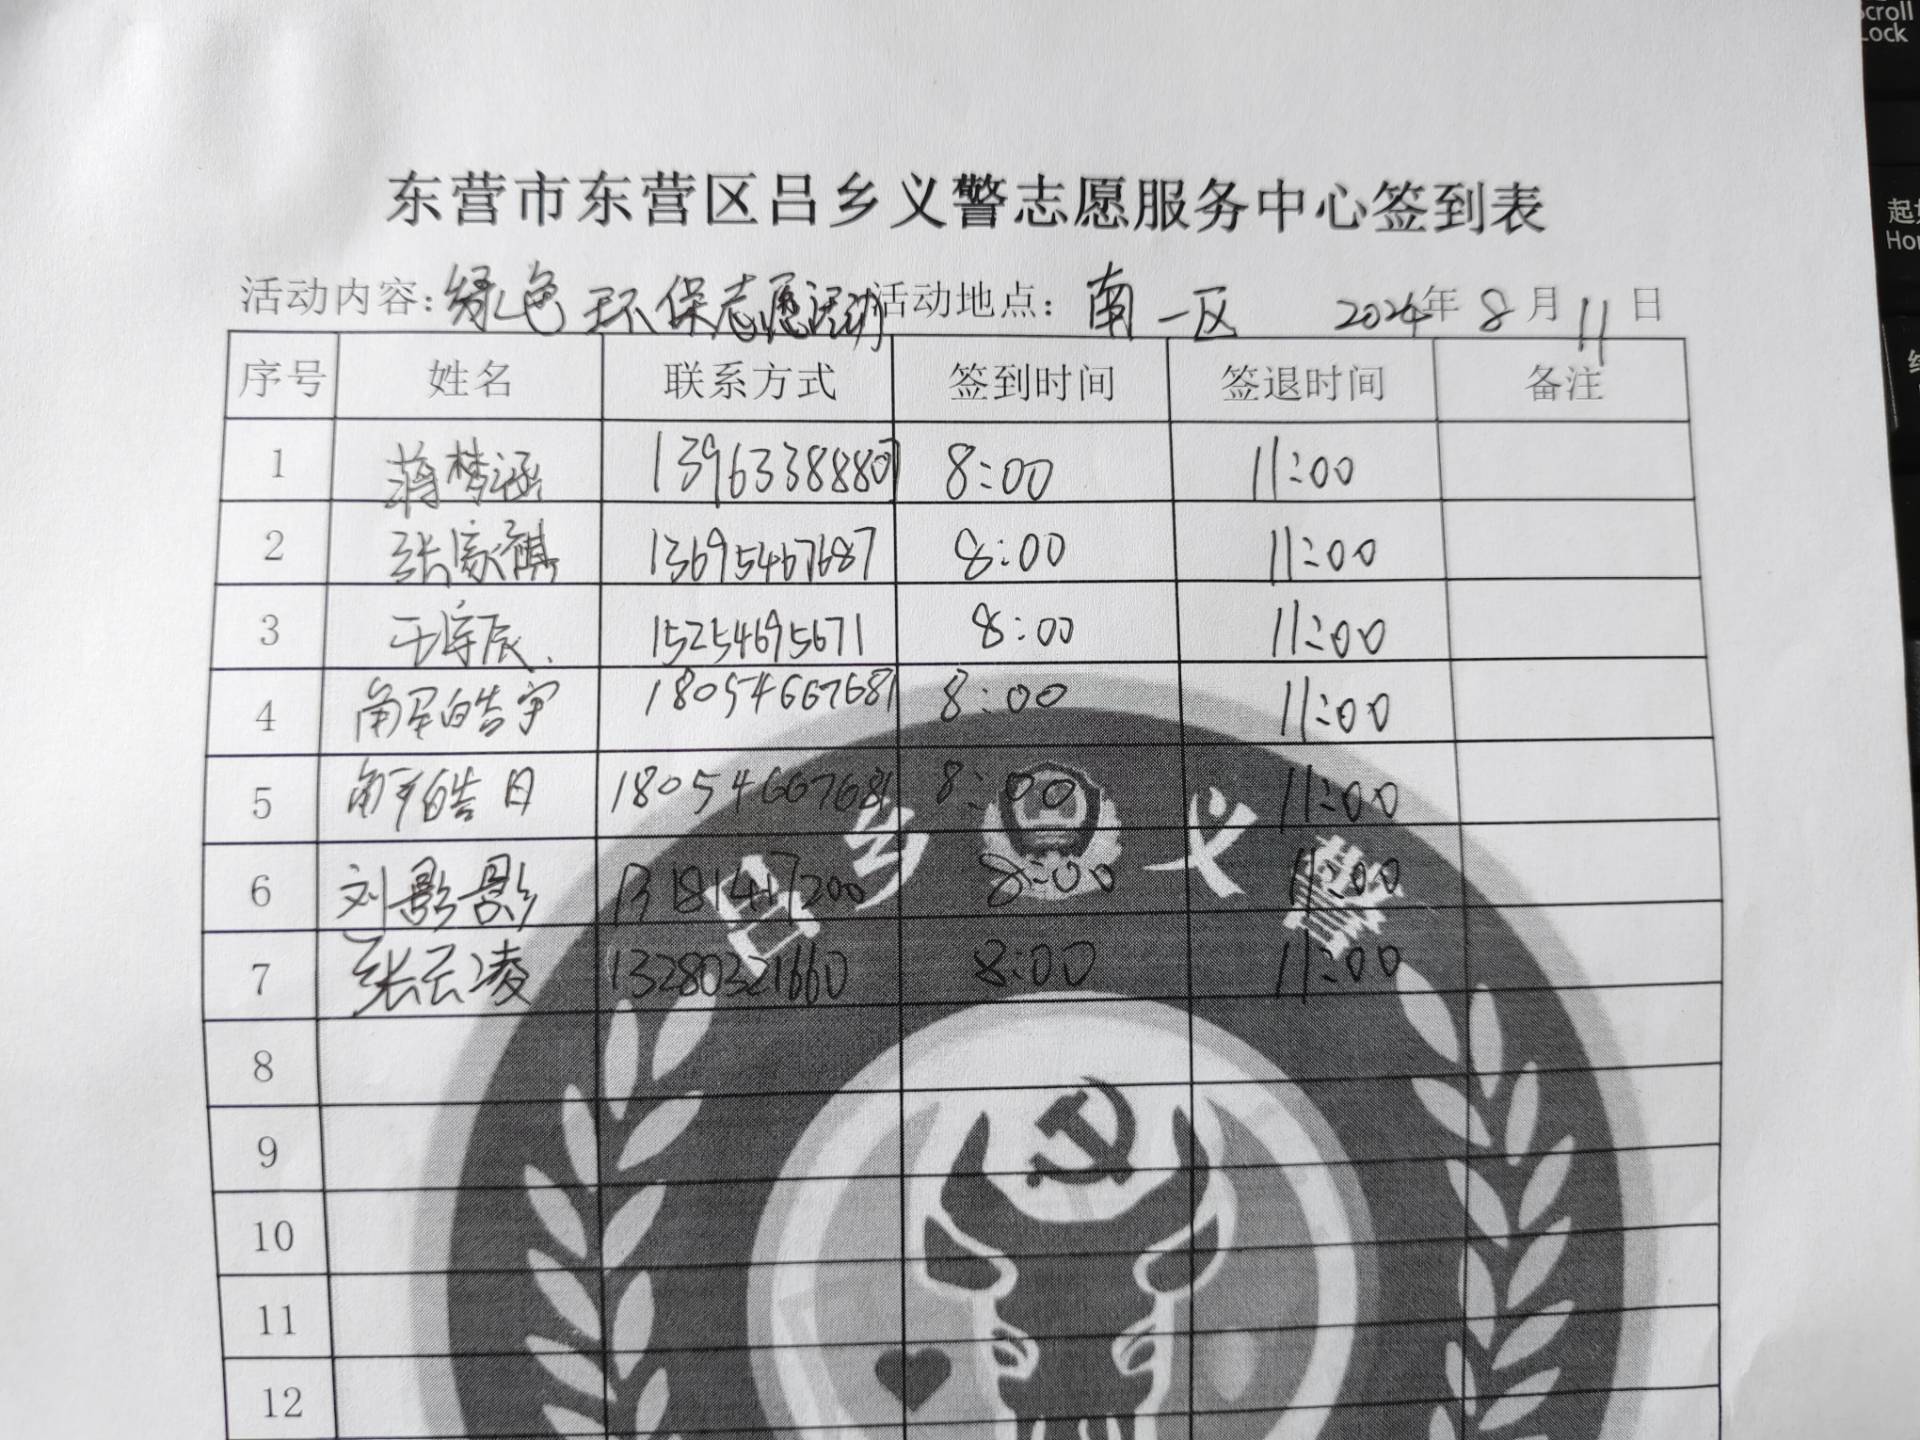 Scroll
Lock
Hom
东营市东营区吕乡义警志愿服务中心签到表
活动内容：绿色环保志愿活动 活动地点：南一区 2024年8月11日
序号 姓名 联系方式 签到时间 签退时间 备注
1 蒋梦涵 13963388807 8:00 11:00
2 张家祺 13695467687 8:00 11:00
3 王宇辰 15254695671 8:00 11:00
4 皓宇 18054667681 8:00 11:00
5 皓日 18054667681 8:00 11:00
6 刘影影 13181417200 8:00 11:00
7 张云凌 13280321660 8:00 11:00
吕乡义警
8
9
10
11
12